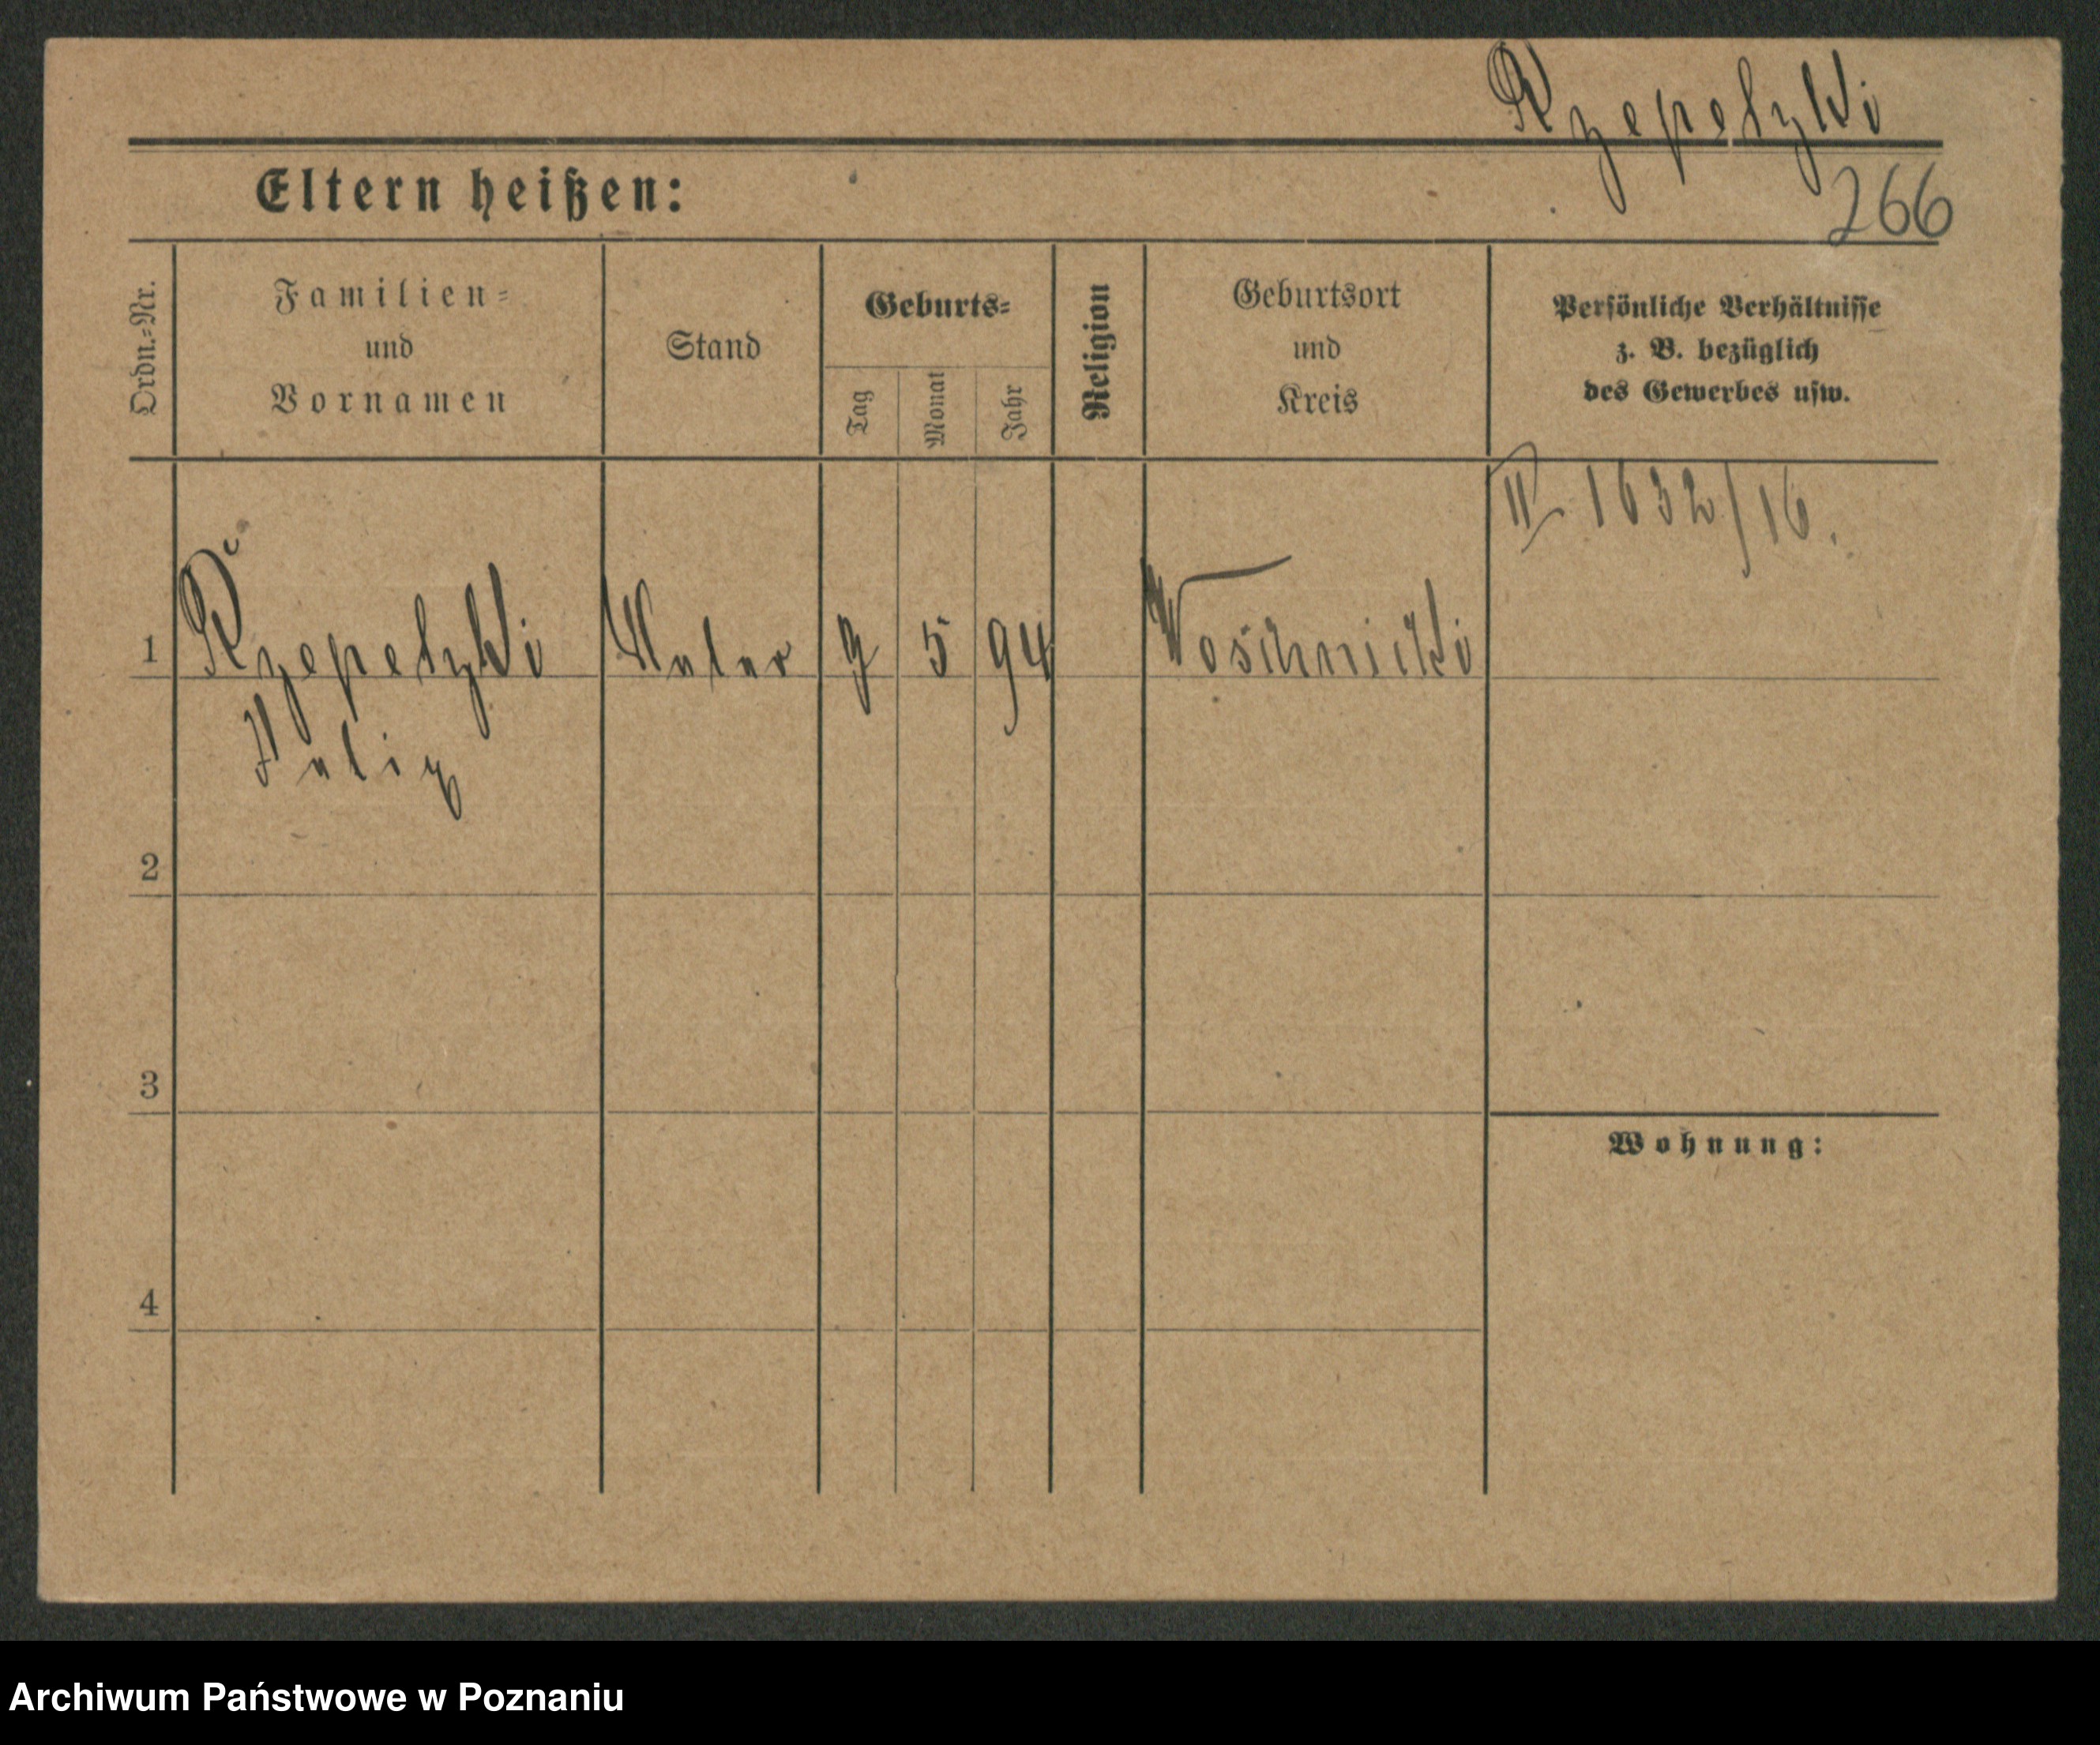 Rzepetzki
Eltern heißen:
266
Ordn.=Nr.
Familien=
und
Vornamen
Stand
Geburts=
Tag
Monat
Jahr
Religion
Geburtsort
und
Kreis
Persönliche Verhältnisse
z. B. bezüglich
des Gewerbes usw.
1632/16.
1 Rzepetzki 5 94
2
3
Wohnung:
4
Archiwum Państwowe w Poznaniu